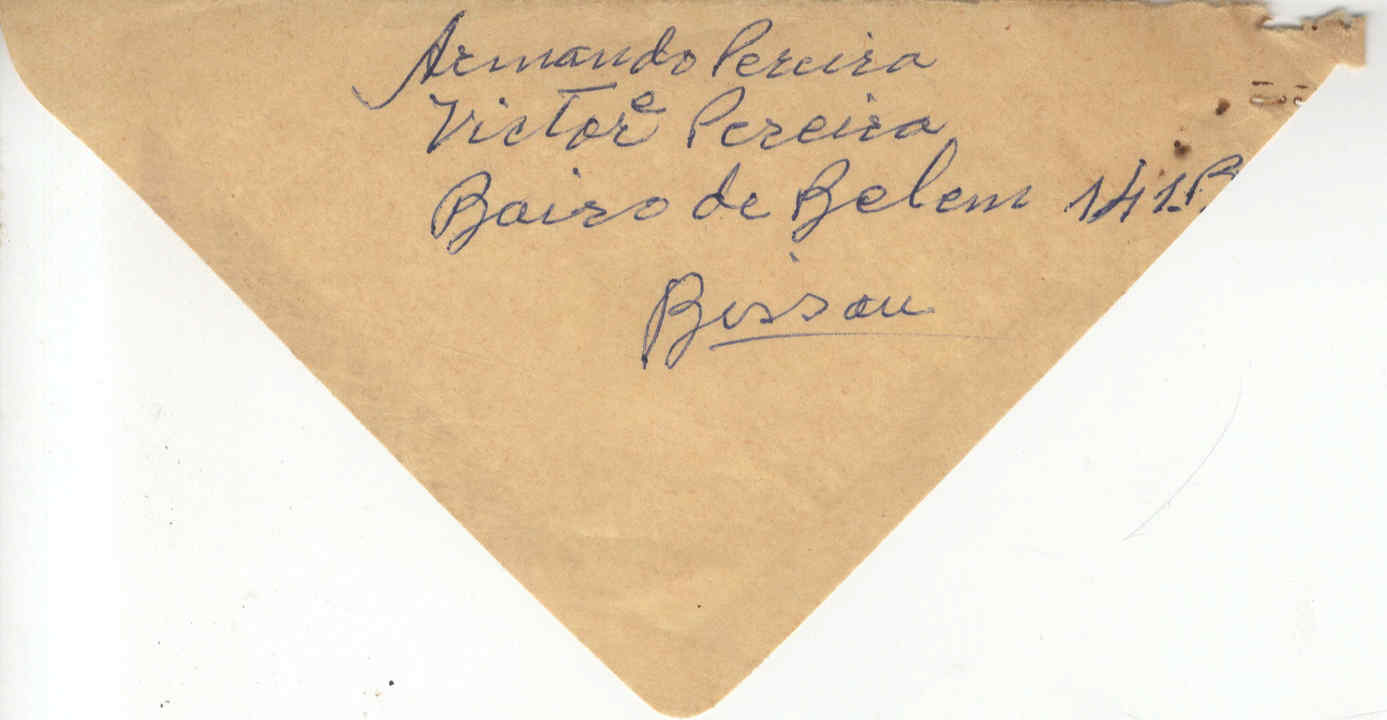 Armando Pereira
Victor e Pereira
Bairo de Belem 141B
Bissau